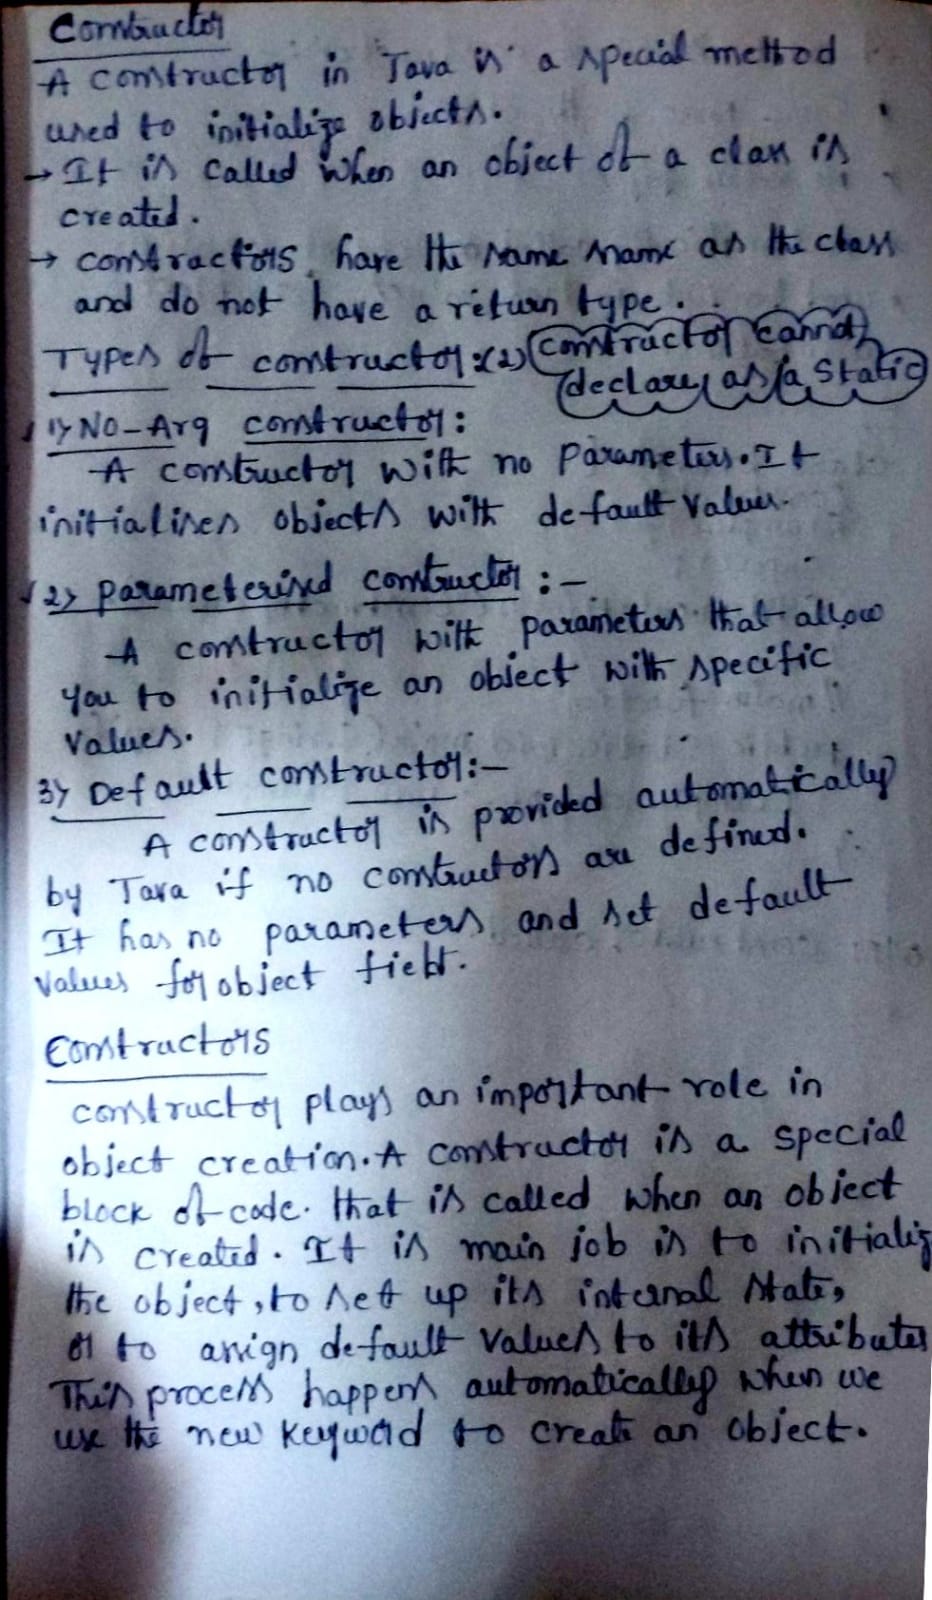 Constructor
A constructor in Java is a special method
used to initialize objects.
→ It is called when an object of a class is
created.
→ constructors have the same name as the class
and do not have a return type.
Types of constructor:(2) constructor cannot
declare as a static
1) No-Arg constructor:
A constructor with no parameters. It
initialises objects with default values.
2) parameterised constructor :-
A constructor with parameters that allow
you to initialize an object with specific
values.
3) Default constructor:-
A constructor is provided automatically
by Java if no constructors are defined.
It has no parameters and set default
values for object field.
Constructors
constructor plays an important role in
object creation. A constructor is a special
block of code. that is called when an object
is created. It is main job is to initialize
the object, to set up its internal state,
or to assign default values to its attributes
This process happens automatically when we
use the new keyword to create an object.